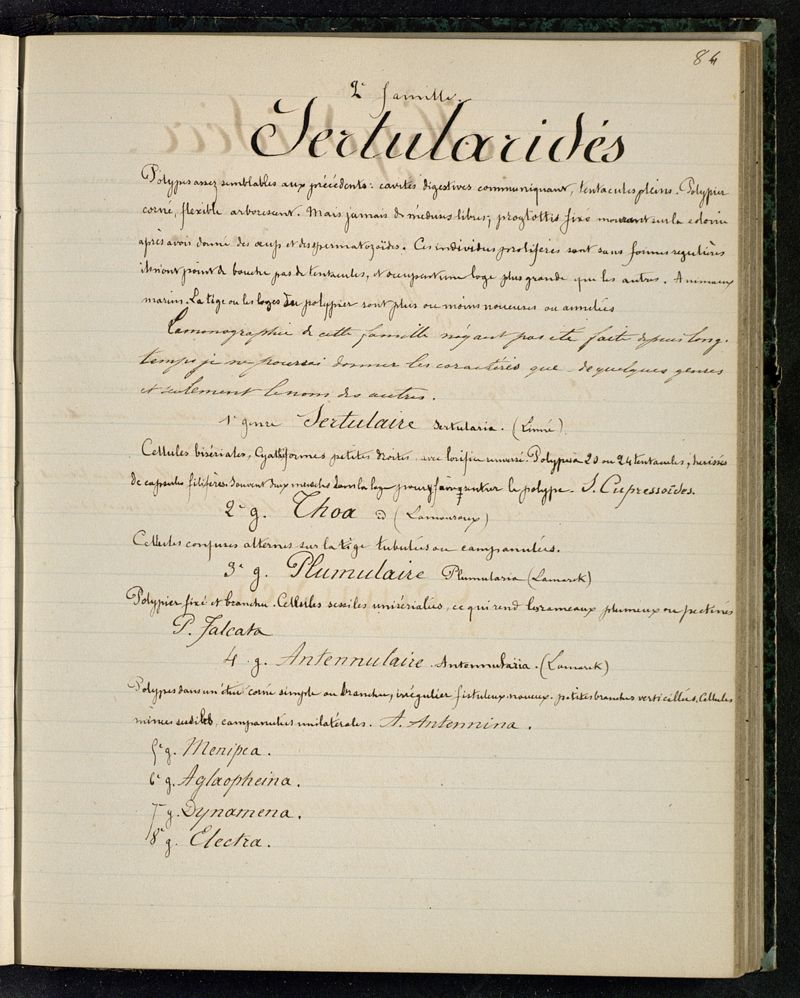 84
2e famille.
Sertularidés
Polypes assez semblables aux précédents: cavités digestives communiquant, tentacules pleins. Polypier
corné, flexible arborescent. Mais jamais de méduses libres; proglottis fixe mourant sur la colonie
après avoir donné des œufs et des spermatozoïdes. Ces individus prolifères sont sans formes regulières
ils n'ont point de bouche pas de tentacules, et occupent une loge plus grande que les autres. Animaux
marins. La tige ou les loges du polypier sont plus ou moins noueuses ou annelées
La monographie de cette famille n'ayant pas été faite depuis long-
temps je ne pourrai donner les caractères que de quelques genres
et seulement le nom des autres.
1e genre Sertulaire Sertularia. (Linné).
Cellules bisériales, Cyathiformes petites droites avec l'orifice renversé. Polypes à 20 ou 24 tentacules, hérissés
de capsules filifères. Souvent deux muscles dans la loge pour faire rentrer le polype. S. Cupressoïdes.
2e g. Thoa (Lamouroux)
Cellules confuses alternes sur la tige tubulées ou campanulées.
3e g. Plumulaire Plumularia (Lamarck)
Polypier fixé et branchu. Cellules sessiles unisériales, ce qui rend les rameaux plumeux ou pectinés
P. Falcata
4 g. Antennulaire Antennularia. (Lamarck)
Polypes dans un étui corné simple ou branchu, irrégulier fistuleux noueux. petites branches verticillées, Cellules
mêmes sessiles, campanulées unilatérales. A. Antennina.
5e g. Menipea.
6e g. Aglaopheina.
7 g. Dynamena.
8e g. Electra.